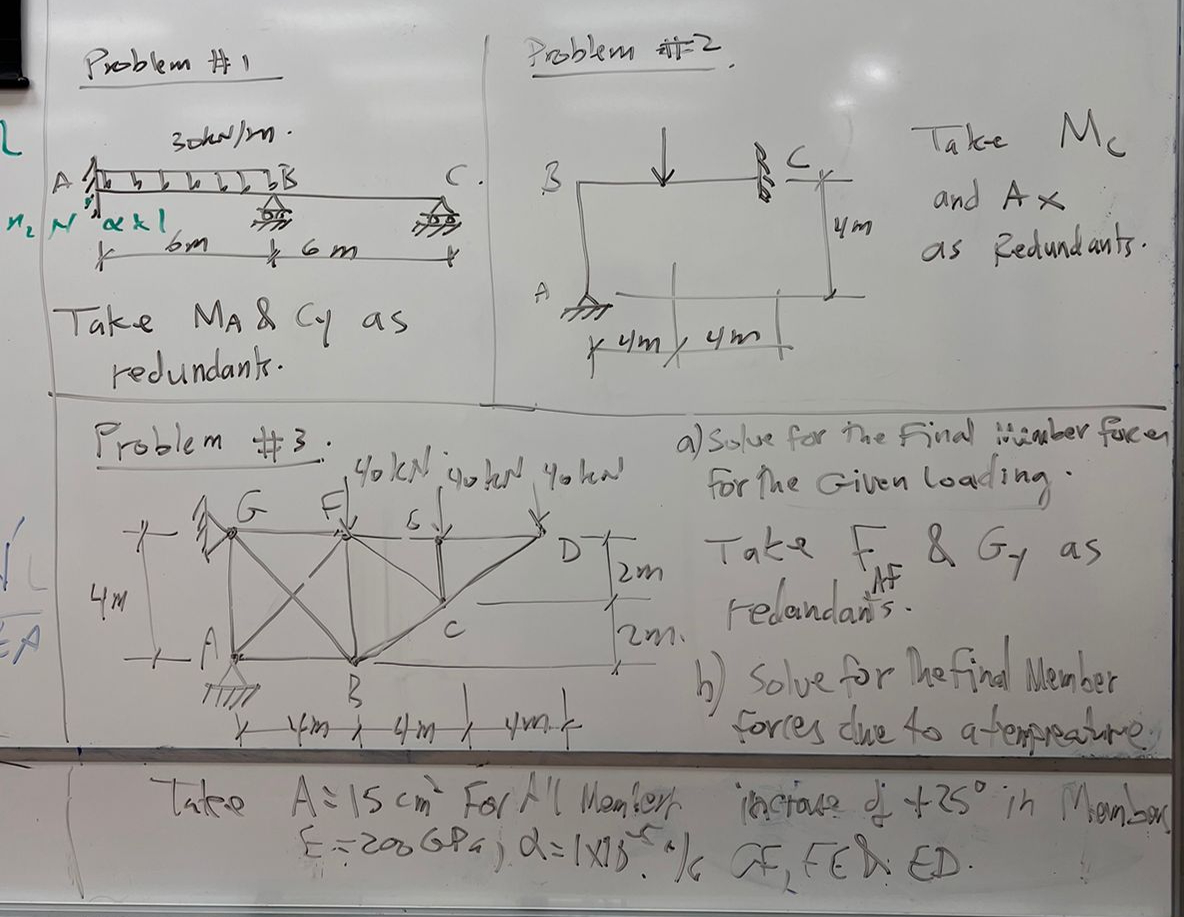 Problem #1
30kN/m.
A
B
C.
6m
6m
Take MA & Cy as
redundant.
Problem #2.
B
C
4m
A
4m
4m
Take MC
and Ax
as Redundants.
Problem #3.
40kN
40kN
40kN
G
F
D
4m
2m
2m.
A
B
C
4m
4m
4m
a) Solve for the Final Member forces
for the Given Loading.
Take FAF & Gy as
redundants.
b) Solve for the final Member
forces due to a tempreature
increase of +25° in Members
GF, FE & ED.
Take A = 15 cm² For All Members
E = 200GPa, α = 1x10-5